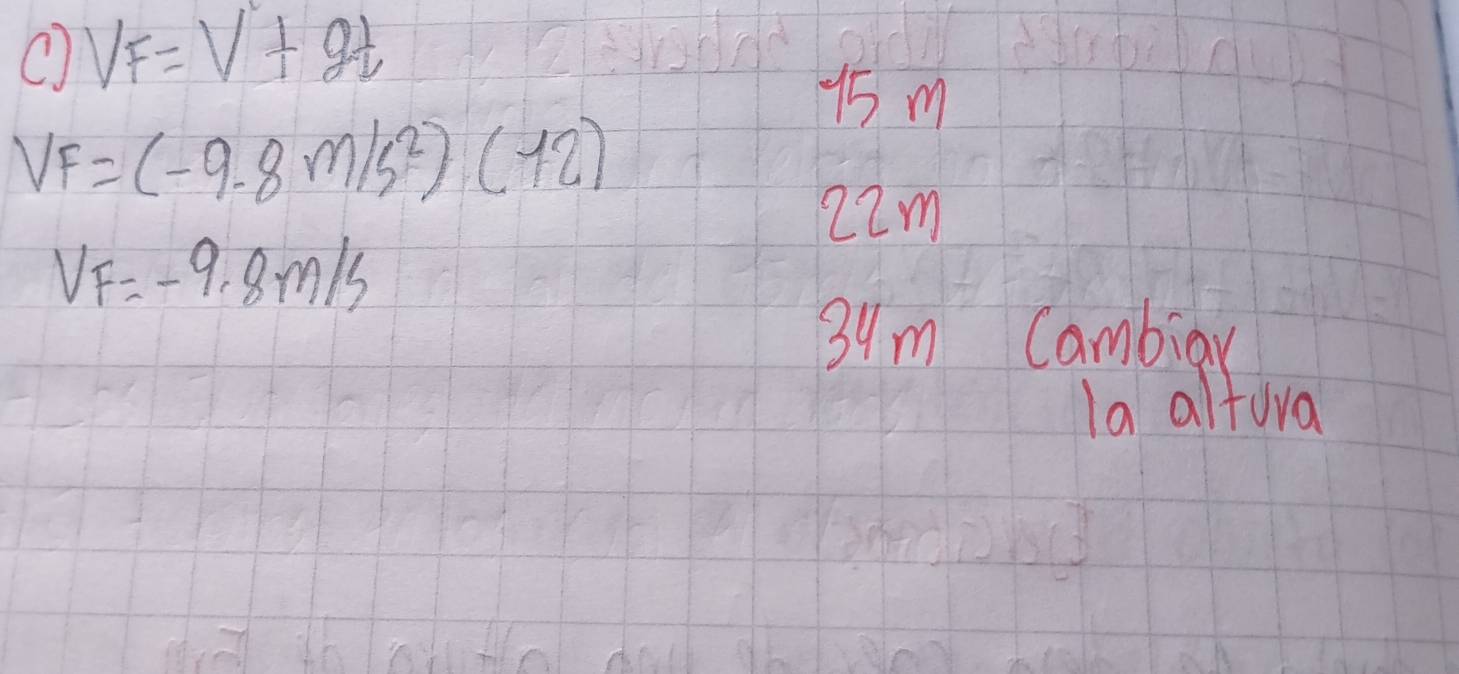 C) VF = V + gt
VF = (-9.8 m/s²) (12)
VF = -9.8 m/s
15 m
22 m
34 m Cambiar
la altura